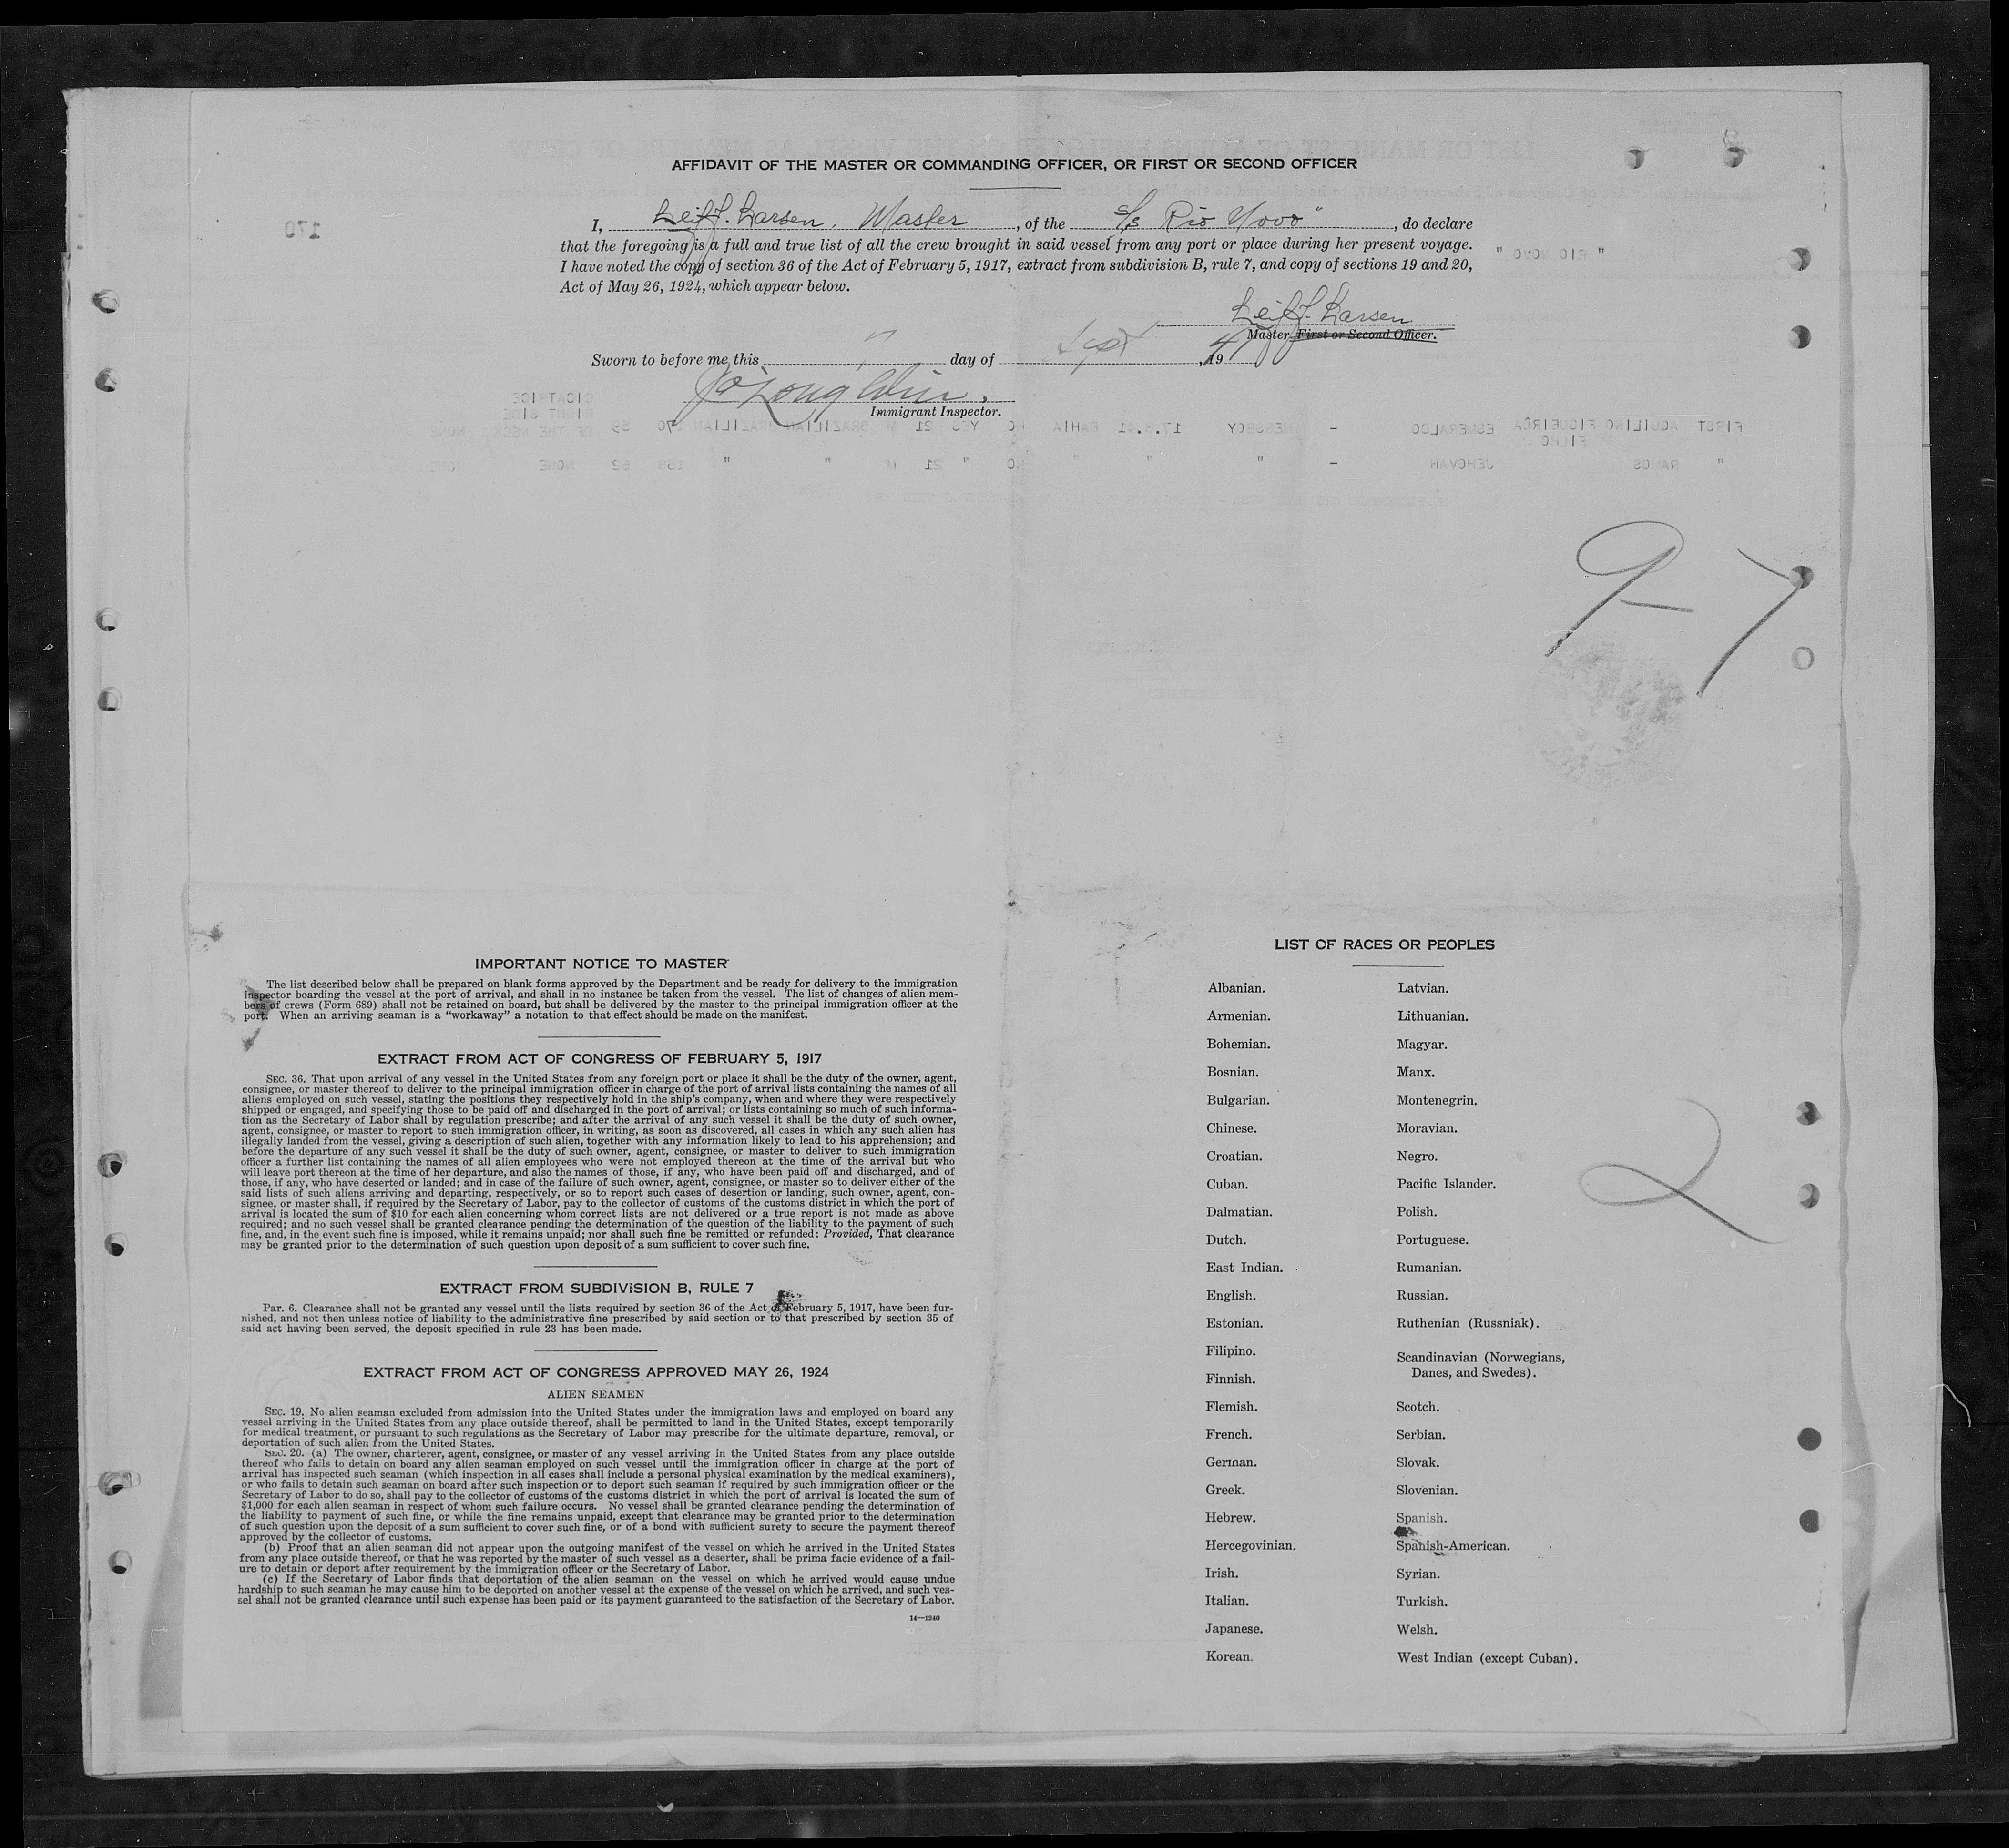 AFFIDAVIT OF THE MASTER OR COMMANDING OFFICER, OR FIRST OR SECOND OFFICER
I, Leif J. Larsen. Master, of the S/s Rio Novo", do declare
that the foregoing is a full and true list of all the crew brought in said vessel from any port or place during her present voyage.
I have noted the copy of section 36 of the Act of February 5, 1917, extract from subdivision B, rule 7, and copy of sections 19 and 20,
Act of May 26, 1924, which appear below.
Leif J. Larsen
Master, First or Second Officer.
Sworn to before me this 7 day of Sept, 1941
Immigrant Inspector.
170
" RIO NOVO "
CICATRICE
RIGHT SIDE
FIRST AQUILINO FIGUEIRÔA ESMERALDO - MESSBOY 17.8.41 BAHIA NO YES 21 M BRAZILIAN BRAZILIAN 170 59 OF THE NECK NONE
FILHO
" RAMOS JEHOVAH - " " " NO " 21 M " " 158 52 NONE NONE
9-7
IMPORTANT NOTICE TO MASTER
The list described below shall be prepared on blank forms approved by the Department and be ready for delivery to the immigration
inspector boarding the vessel at the port of arrival, and shall in no instance be taken from the vessel. The list of changes of alien mem-
bers of crews (Form 689) shall not be retained on board, but shall be delivered by the master to the principal immigration officer at the
port. When an arriving seaman is a "workaway" a notation to that effect should be made on the manifest.
EXTRACT FROM ACT OF CONGRESS OF FEBRUARY 5, 1917
SEC. 36. That upon arrival of any vessel in the United States from any foreign port or place it shall be the duty of the owner, agent,
consignee, or master thereof to deliver to the principal immigration officer in charge of the port of arrival lists containing the names of all
aliens employed on such vessel, stating the positions they respectively hold in the ship's company, when and where they were respectively
shipped or engaged, and specifying those to be paid off and discharged in the port of arrival; or lists containing so much of such informa-
tion as the Secretary of Labor shall by regulation prescribe; and after the arrival of any such vessel it shall be the duty of such owner,
agent, consignee, or master to report to such immigration officer, in writing, as soon as discovered, all cases in which any such alien has
illegally landed from the vessel, giving a description of such alien, together with any information likely to lead to his apprehension; and
before the departure of any such vessel it shall be the duty of such owner, agent, consignee, or master to deliver to such immigration
officer a further list containing the names of all alien employees who were not employed thereon at the time of the arrival but who
will leave port thereon at the time of her departure, and also the names of those, if any, who have been paid off and discharged, and of
those, if any, who have deserted or landed; and in case of the failure of such owner, agent, consignee, or master so to deliver either of the
said lists of such aliens arriving and departing, respectively, or so to report such cases of desertion or landing, such owner, agent, con-
signee, or master shall, if required by the Secretary of Labor, pay to the collector of customs of the customs district in which the port of
arrival is located the sum of $10 for each alien concerning whom correct lists are not delivered or a true report is not made as above
required; and no such vessel shall be granted clearance pending the determination of the question of the liability to the payment of such
fine, and, in the event such fine is imposed, while it remains unpaid; nor shall such fine be remitted or refunded: Provided, That clearance
may be granted prior to the determination of such question upon deposit of a sum sufficient to cover such fine.
EXTRACT FROM SUBDIVISION B, RULE 7
Par. 6. Clearance shall not be granted any vessel until the lists required by section 36 of the Act of February 5, 1917, have been fur-
nished, and not then unless notice of liability to the administrative fine prescribed by said section or to that prescribed by section 35 of
said act having been served, the deposit specified in rule 23 has been made.
EXTRACT FROM ACT OF CONGRESS APPROVED MAY 26, 1924
ALIEN SEAMEN
SEC. 19. No alien seaman excluded from admission into the United States under the immigration laws and employed on board any
vessel arriving in the United States from any place outside thereof, shall be permitted to land in the United States, except temporarily
for medical treatment, or pursuant to such regulations as the Secretary of Labor may prescribe for the ultimate departure, removal, or
deportation of such alien from the United States.
SEC. 20. (a) The owner, charterer, agent, consignee, or master of any vessel arriving in the United States from any place outside
thereof who fails to detain on board any alien seaman employed on such vessel until the immigration officer in charge at the port of
arrival has inspected such seaman (which inspection in all cases shall include a personal physical examination by the medical examiners),
or who fails to detain such seaman on board after such inspection or to deport such seaman if required by such immigration officer or the
Secretary of Labor to do so, shall pay to the collector of customs of the customs district in which the port of arrival is located the sum of
$1,000 for each alien seaman in respect of whom such failure occurs. No vessel shall be granted clearance pending the determination of
the liability to payment of such fine, or while the fine remains unpaid, except that clearance may be granted prior to the determination
of such question upon the deposit of a sum sufficient to cover such fine, or of a bond with sufficient surety to secure the payment thereof
approved by the collector of customs.
(b) Proof that an alien seaman did not appear upon the outgoing manifest of the vessel on which he arrived in the United States
from any place outside thereof, or that he was reported by the master of such vessel as a deserter, shall be prima facie evidence of a fail-
ure to detain or deport after requirement by the immigration officer or the Secretary of Labor.
(c) If the Secretary of Labor finds that deportation of the alien seaman on the vessel on which he arrived would cause undue
hardship to such seaman he may cause him to be deported on another vessel at the expense of the vessel on which he arrived, and such ves-
sel shall not be granted clearance until such expense has been paid or its payment guaranteed to the satisfaction of the Secretary of Labor.
14—1240
LIST OF RACES OR PEOPLES
Albanian. Latvian.
Armenian. Lithuanian.
Bohemian. Magyar.
Bosnian. Manx.
Bulgarian. Montenegrin.
Chinese. Moravian.
Croatian. Negro.
Cuban. Pacific Islander.
Dalmatian. Polish.
Dutch. Portuguese.
East Indian. Rumanian.
English. Russian.
Estonian. Ruthenian (Russniak).
Filipino. Scandinavian (Norwegians,
Danes, and Swedes).
Finnish.
Flemish. Scotch.
French. Serbian.
German. Slovak.
Greek. Slovenian.
Hebrew. Spanish.
Hercegovinian. Spanish-American.
Irish. Syrian.
Italian. Turkish.
Japanese. Welsh.
Korean. West Indian (except Cuban).
2